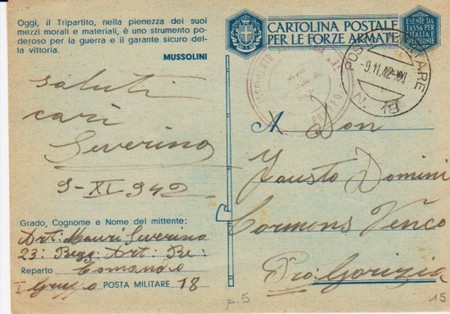 Oggi, il Tripartito, nella pienezza dei suoi
mezzi morali e materiali, è uno strumento po-
deroso per la guerra e il garante sicuro del-
la vittoria.
MUSSOLINI
CARTOLINA POSTALE
PER LE FORZE ARMATE
ESENTE DA
TASSA PER
L'ITALIA E
POSTA MILITARE
-9.11.42-XXI
N. 18
saluti
cari
Severino
9-XI-942
A Don
Fausto Domini
Cormons Venco
Pro: Gorizia
Grado, Cognome e Nome del mittente:
Art: Mauri Severino
23: Regg: Art: Re:
Reparto Comando
I Gruppo POSTA MILITARE 18
p.5
15